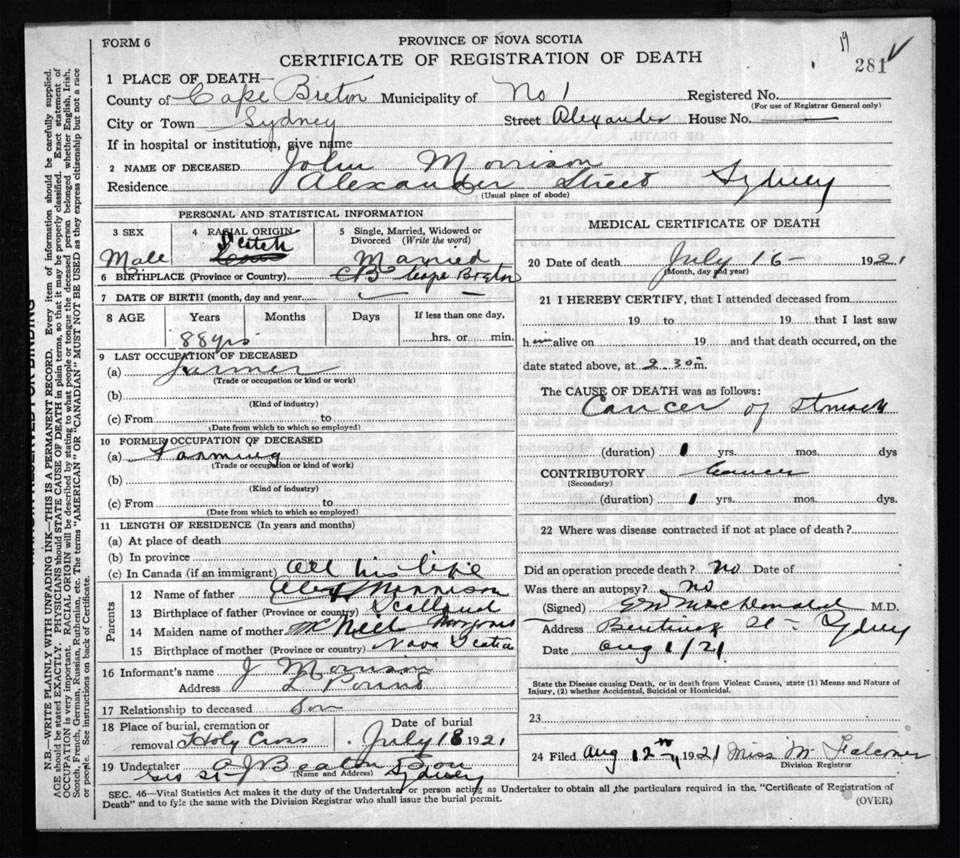 FORM 6
PROVINCE OF NOVA SCOTIA
CERTIFICATE OF REGISTRATION OF DEATH
19
281
1 PLACE OF DEATH—
County of Cape Breton Municipality of No 1 Registered No.
(For use of Registrar General only)
City or Town Sydney Street Alexander House No. —
If in hospital or institution, give name
2 NAME OF DECEASED John Morrison
Residence Alexander Street Sydney
(Usual place of abode)
PERSONAL AND STATISTICAL INFORMATION
3 SEX 4 RACIAL ORIGIN 5 Single, Married, Widowed or Divorced (Write the word)
Male Scotch Married
6 BIRTHPLACE (Province or Country) CB Cape Breton
7 DATE OF BIRTH (month, day and year)
8 AGE Years Months Days If less than one day,
88 yrs hrs. or min.
9 LAST OCCUPATION OF DECEASED
(a) Farmer
(Trade or occupation or kind or work)
(b)
(Kind of industry)
(c) From to
(Date from which to which so employed)
10 FORMER OCCUPATION OF DECEASED
(a) Farming
(Trade or occupation or kind or work)
(b)
(Kind of industry)
(c) From to
(Date from which to which so employed)
11 LENGTH OF RESIDENCE (In years and months)
(a) At place of death
(b) In province
(c) In Canada (if an immigrant) All his life
Parents
12 Name of father Alex Morrison
13 Birthplace of father (Province or country) Scotland
14 Maiden name of mother McNeil
15 Birthplace of mother (Province or country) Nova Scotia
16 Informant's name J Morrison
Address
17 Relationship to deceased Son
18 Place of burial, cremation or removal Holy Cross Date of burial July 18 1921
19 Undertaker A J Beaton & Son
(Name and Address)
Geo St Sydney
MEDICAL CERTIFICATE OF DEATH
20 Date of death July 16 — 1921
(Month, day and year)
21 I HEREBY CERTIFY, that I attended deceased from
19 to 19 that I last saw
him alive on 19 and that death occurred, on the
date stated above, at 2.30 m.
The CAUSE OF DEATH was as follows:
Cancer of Stomach
(duration) 1 yrs. mos. dys
CONTRIBUTORY Cancer
(Secondary)
(duration) 1 yrs. mos. dys.
22 Where was disease contracted if not at place of death?
Did an operation precede death? no Date of
Was there an autopsy? no
(Signed) MacDonald M.D.
Address Bentinck St — Sydney
Date Aug 1/21
State the Disease causing Death, or in death from Violent Causes, state (1) Means and Nature of
Injury, (2) whether Accidental, Suicidal or Homicidal.
23
24 Filed Aug 12th 1921 Miss M Falconer
Division Registrar
SEC. 46—Vital Statistics Act makes it the duty of the Undertaker or person acting as Undertaker to obtain all the particulars required in the "Certificate of Registration of
Death" and to fyle the same with the Division Registrar who shall issue the burial permit.
(OVER)
N.B.—WRITE PLAINLY WITH UNFADING INK—THIS IS A PERMANENT RECORD. Every item of information should be carefully supplied.
AGE should be stated EXACTLY. PHYSICIANS should STATE CAUSE OF DEATH in plain terms, so that it may be properly classified. Exact statement of
OCCUPATION is very important. RACIAL ORIGIN will be described by stating to what people or tongue the deceased person belonged whether English, Irish,
Scotch, French, German, Russian, Ruthenian, etc. The terms "AMERICAN" OR "CANADIAN" MUST NOT BE USED as they express citizenship but not a race
or people. See instructions on back of Certificate.